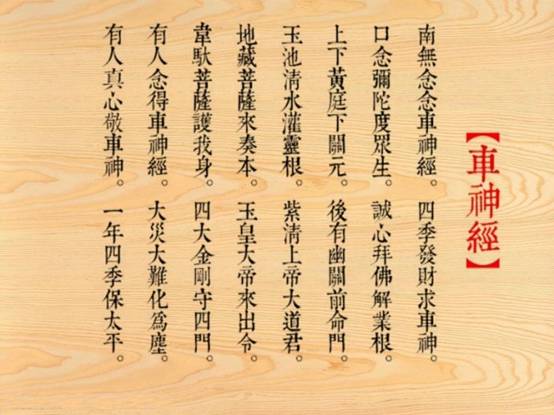 【車神經】
南無念念車神經。四季發財求車神。
口念彌陀度眾生。誠心拜佛解業根。
上下黃庭下關元。後有幽關前命門。
玉池清水灌靈根。紫清上帝大道君。
地藏菩薩來奏本。玉皇大帝來出令。
韋馱菩薩護我身。四大金剛守四門。
有人念得車神經。大災大難化為塵。
有人真心敬車神。一年四季保太平。